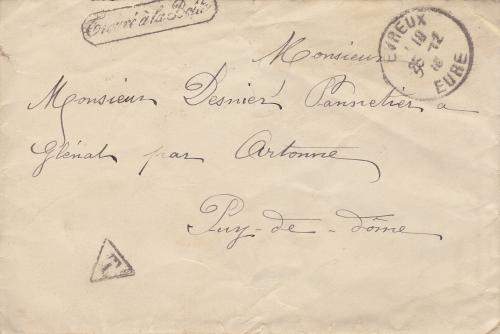 Trouvé à la Boîte
EVREUX
EURE
Monsieur
Monsieur Desnier Pannetier a
Glénat par Artonne
Puy-de-dôme
T